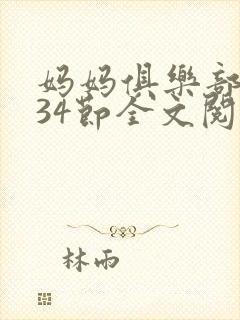 妈妈俱樂部
34節全文閱
林雨